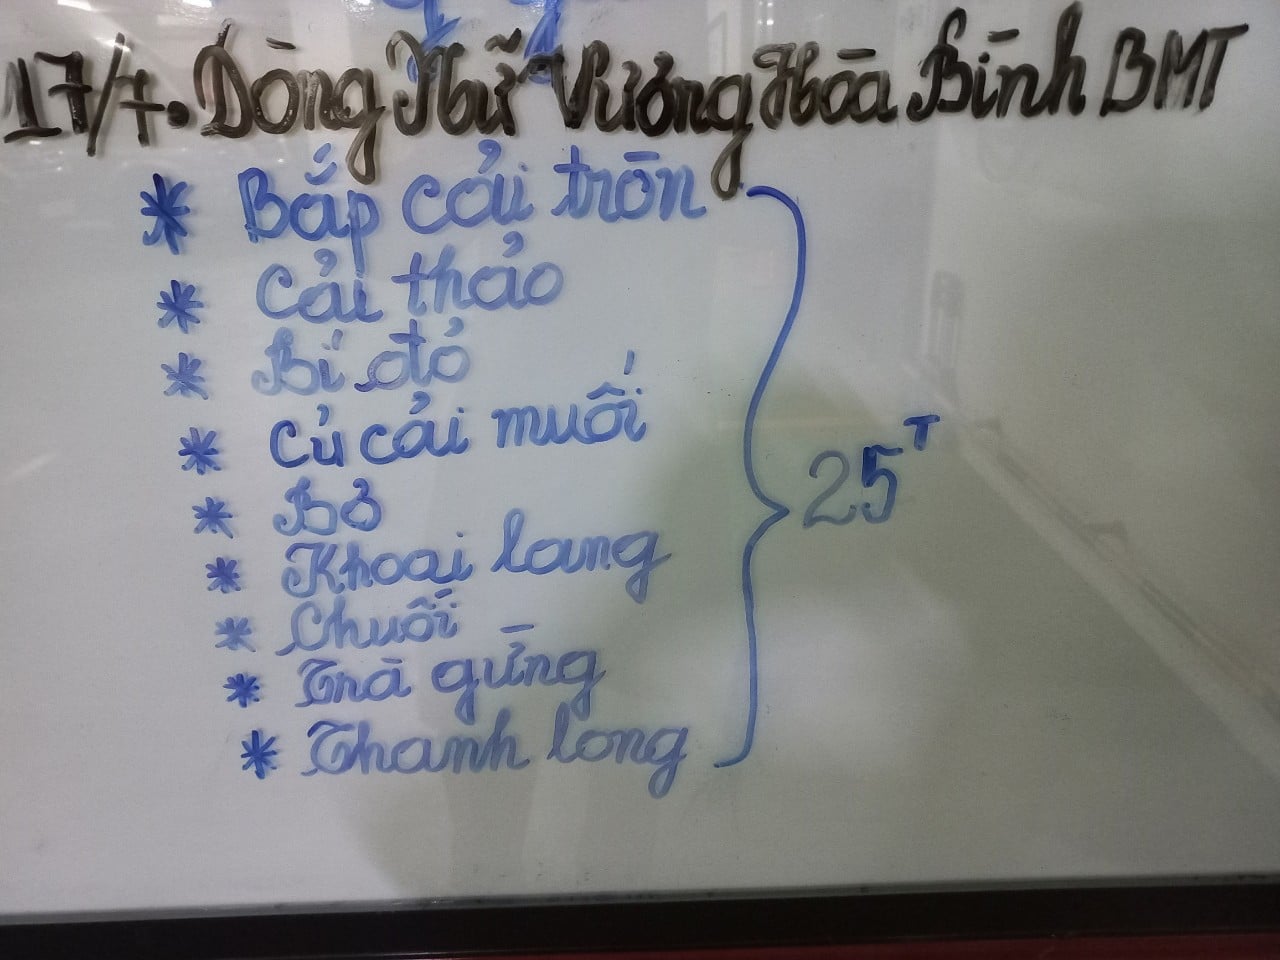 17/7. Dòng Nữ Vương Hòa Bình BMT
* Bắp cải tròn
* Cải thảo
* Bí đỏ
* Củ cải muối
* Bơ
* Khoai lang
* Chuối
* Trà gừng
* Thanh long
25T